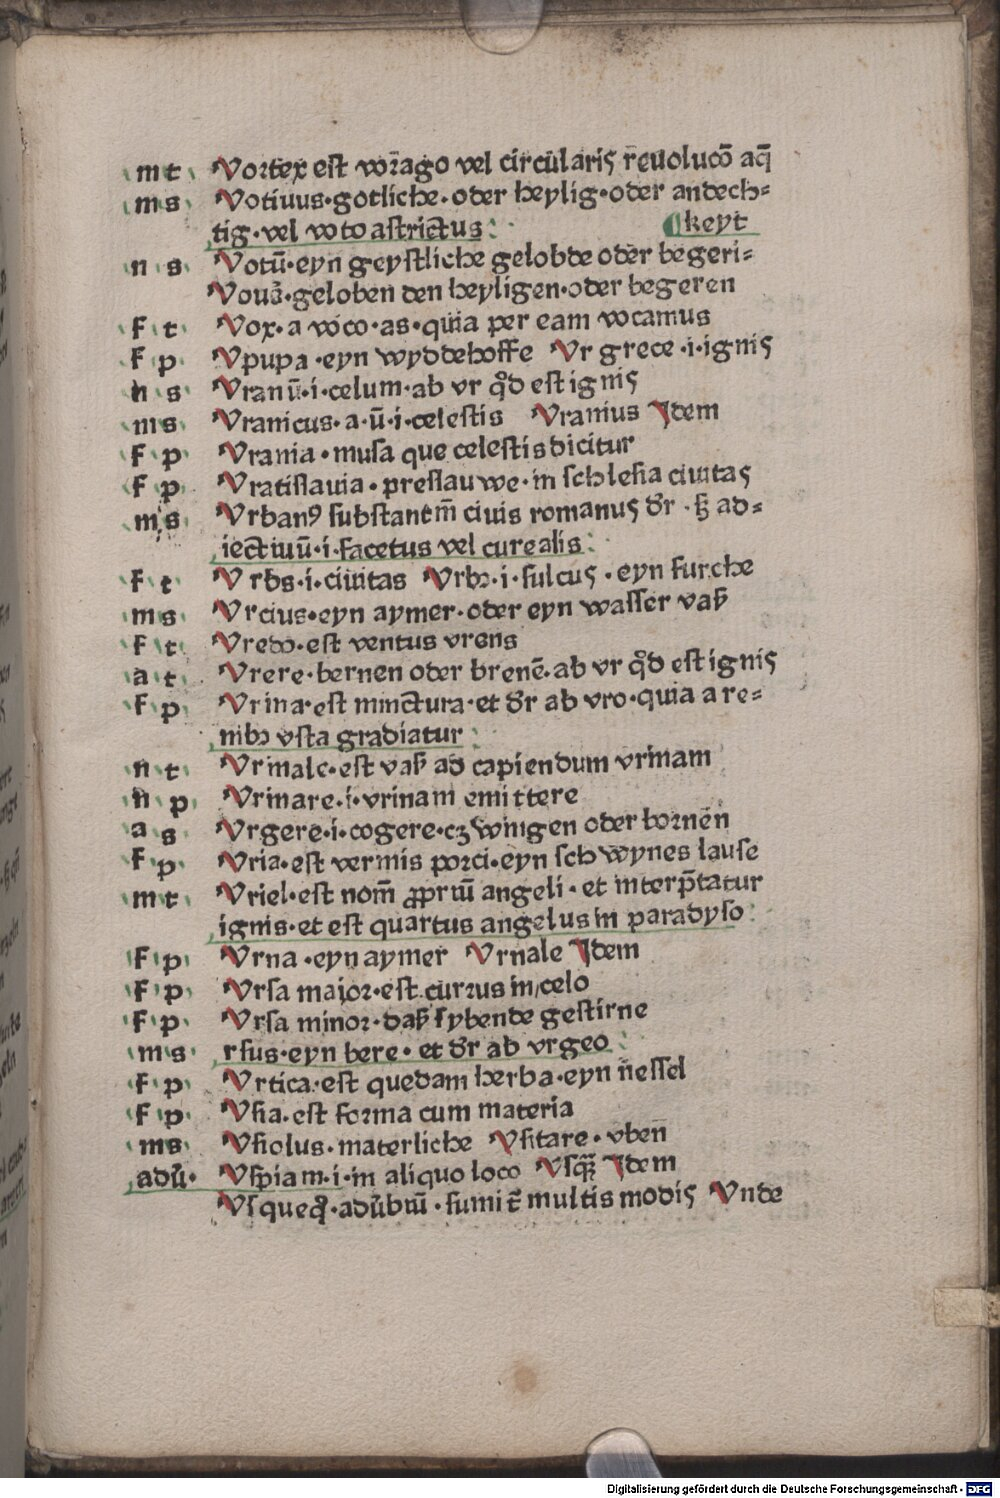 m t Vortex est vorago vel circularis reuolucō aq̄
m s Votiuus·gotliche·oder heylig·oder andech=
tig·vel voto astrictus: keyt
n s Votū·eyn geystliche gelobde oder begeri=
Vouē·geloben den heyligen·oder begeren
f t Vox·a voco·as·quia per eam vocamus
f p Vpupa·eyn wyddehoffe Vr grece·i·ignis
n s Vranū·i·celum·ab vr qd̄ est ignis
m s Vranicus·a·ū·i·celestis Vranius Idem
f p Vrania·musa que celestis dicitur
f p Vratislauia·preslauwe·in schlesia ciuitas
m s Vrbanꝰ substantm̄ ciuis romanus dr̄·sꝫ ad=
iectiuū·i·facetus vel curealis:
f t Vrbs·i·ciuitas Vrbꝫ·i·sulcus·eyn furche
m s Vrcius·eyn aymer·oder eyn wasser vaß
f t Vredo·est ventus vrens
a t Vrere·bernen oder brenē·ab vr qd̄ est ignis
f p Vrina·est minctura·et dr̄ ab vro·quia a re=
nibꝫ vsta gradiatur:
n t Vrinale·est vaß ad capiendum vrinam
n p Vrinare·i·vrinam emittere
a s Vrgere·i·cogere·cꝫwingen oder bornen
f p Vria·est vermis porci·eyn schwynes lause
m t Vriel·est nom̄ ꝓpriū angeli·et interp̄tatur
ignis·et est quartus angelus in paradyso:
f p Vrna·eyn aymer Vrnale Idem
f p Vrsa maior·est currus in celo
f p Vrsa minor·daß sybende gestirne
m s rsus·eyn bere·et dr̄ ab vrgeo:
f p Vrtica·est quedam herba·eyn nessel
f p Vsia·est forma cum materia
m s Vsiolus·materliche Vsitare·vben
adū· Vspiam·i·in aliquo loco Vsqꝫ Idem
Vsqueqꝫ·adūbiū·sumit̄ multis modis Vnde
Digitalisierung gefördert durch die Deutsche Forschungsgemeinschaft · DFG